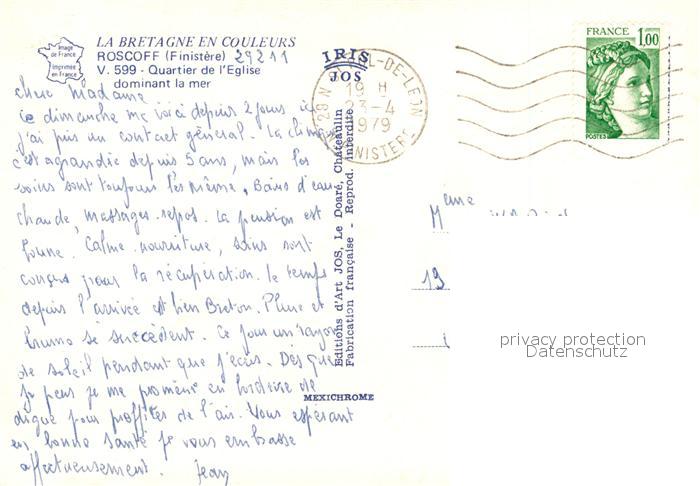 Image
de France
Imprimée
en France
LA BRETAGNE EN COULEURS
ROSCOFF (Finistère) 29211
V. 599 - Quartier de l'Eglise
dominant la mer
chère Madame
ce dimanche me voici depuis 2 jours ici
j'ai pris un contact général. La clinique
c'est agrandie depuis 5 ans, mais les
soins sont toujours les même, Bains d'eau
chaude, massages. repos. La pension est
bonne. Calme nourriture, soins sont
conçus pour la récupération. le temps
depuis l'arrivée est bien Breton. Pluie et
brume se succèdent. Ce jour un rayon
de soleil pendant que j'écris. Dès que
je peux je me promène en bordure de
digue pour profiter de l'air. Vous espérant
en bonne santé je vous embrasse
affectueusement. Jean
IRIS
JOS
Editions d'Art JOS, Le Doaré, Châteaulin
Fabrication française - Reprod. interdite
MEXICHROME
29 N POL-DE-LEON
19 H
23-4
1979
FINISTERE
FRANCE
1,00
POSTES
Mme
19
privacy protection
Datenschutz